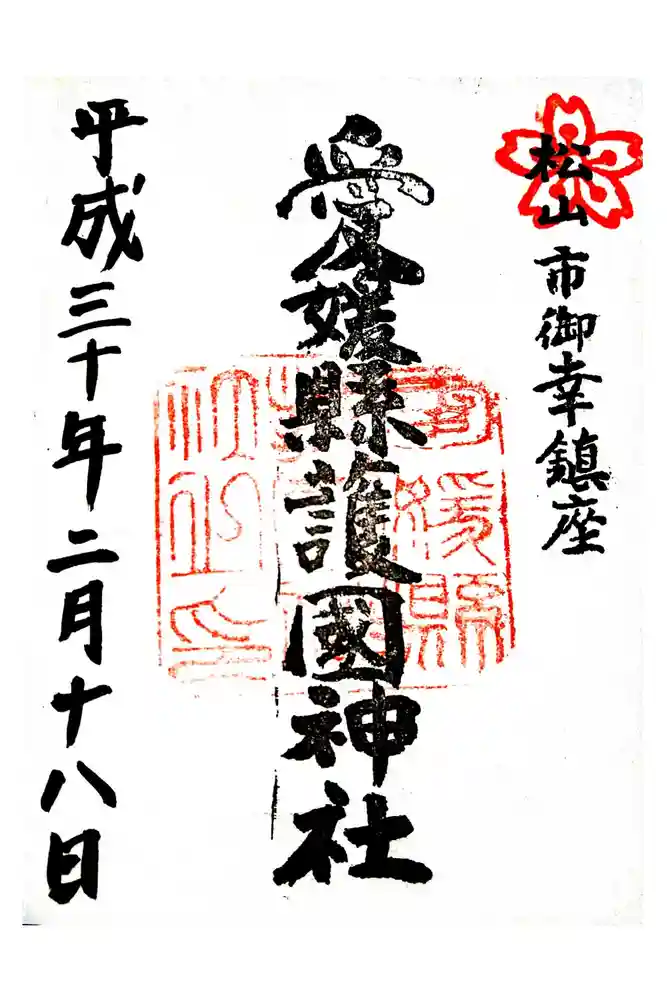 松山市御幸鎮座
愛媛縣護國神社
平成三十年二月十八日